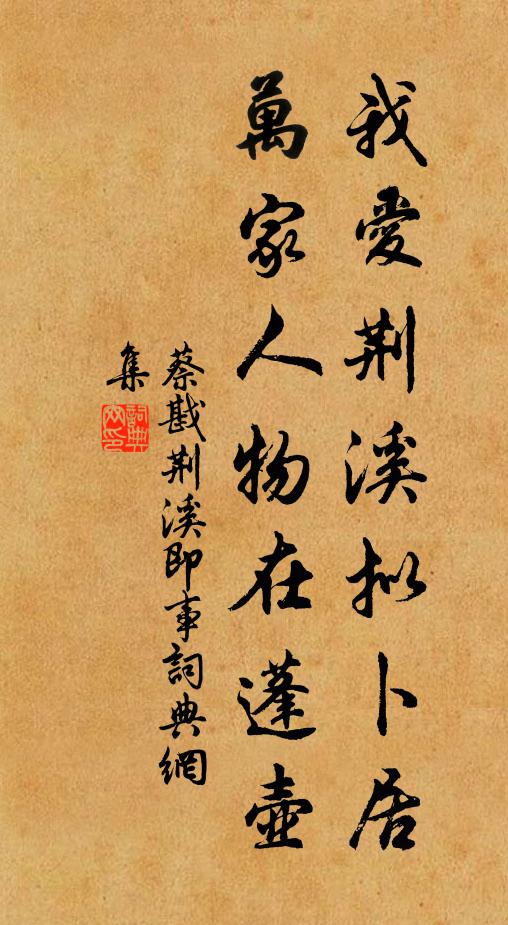 我愛荆溪拟卜居
萬家人物在蓬壺
蔡戡荆溪即事詞典網
集
詞典
网印